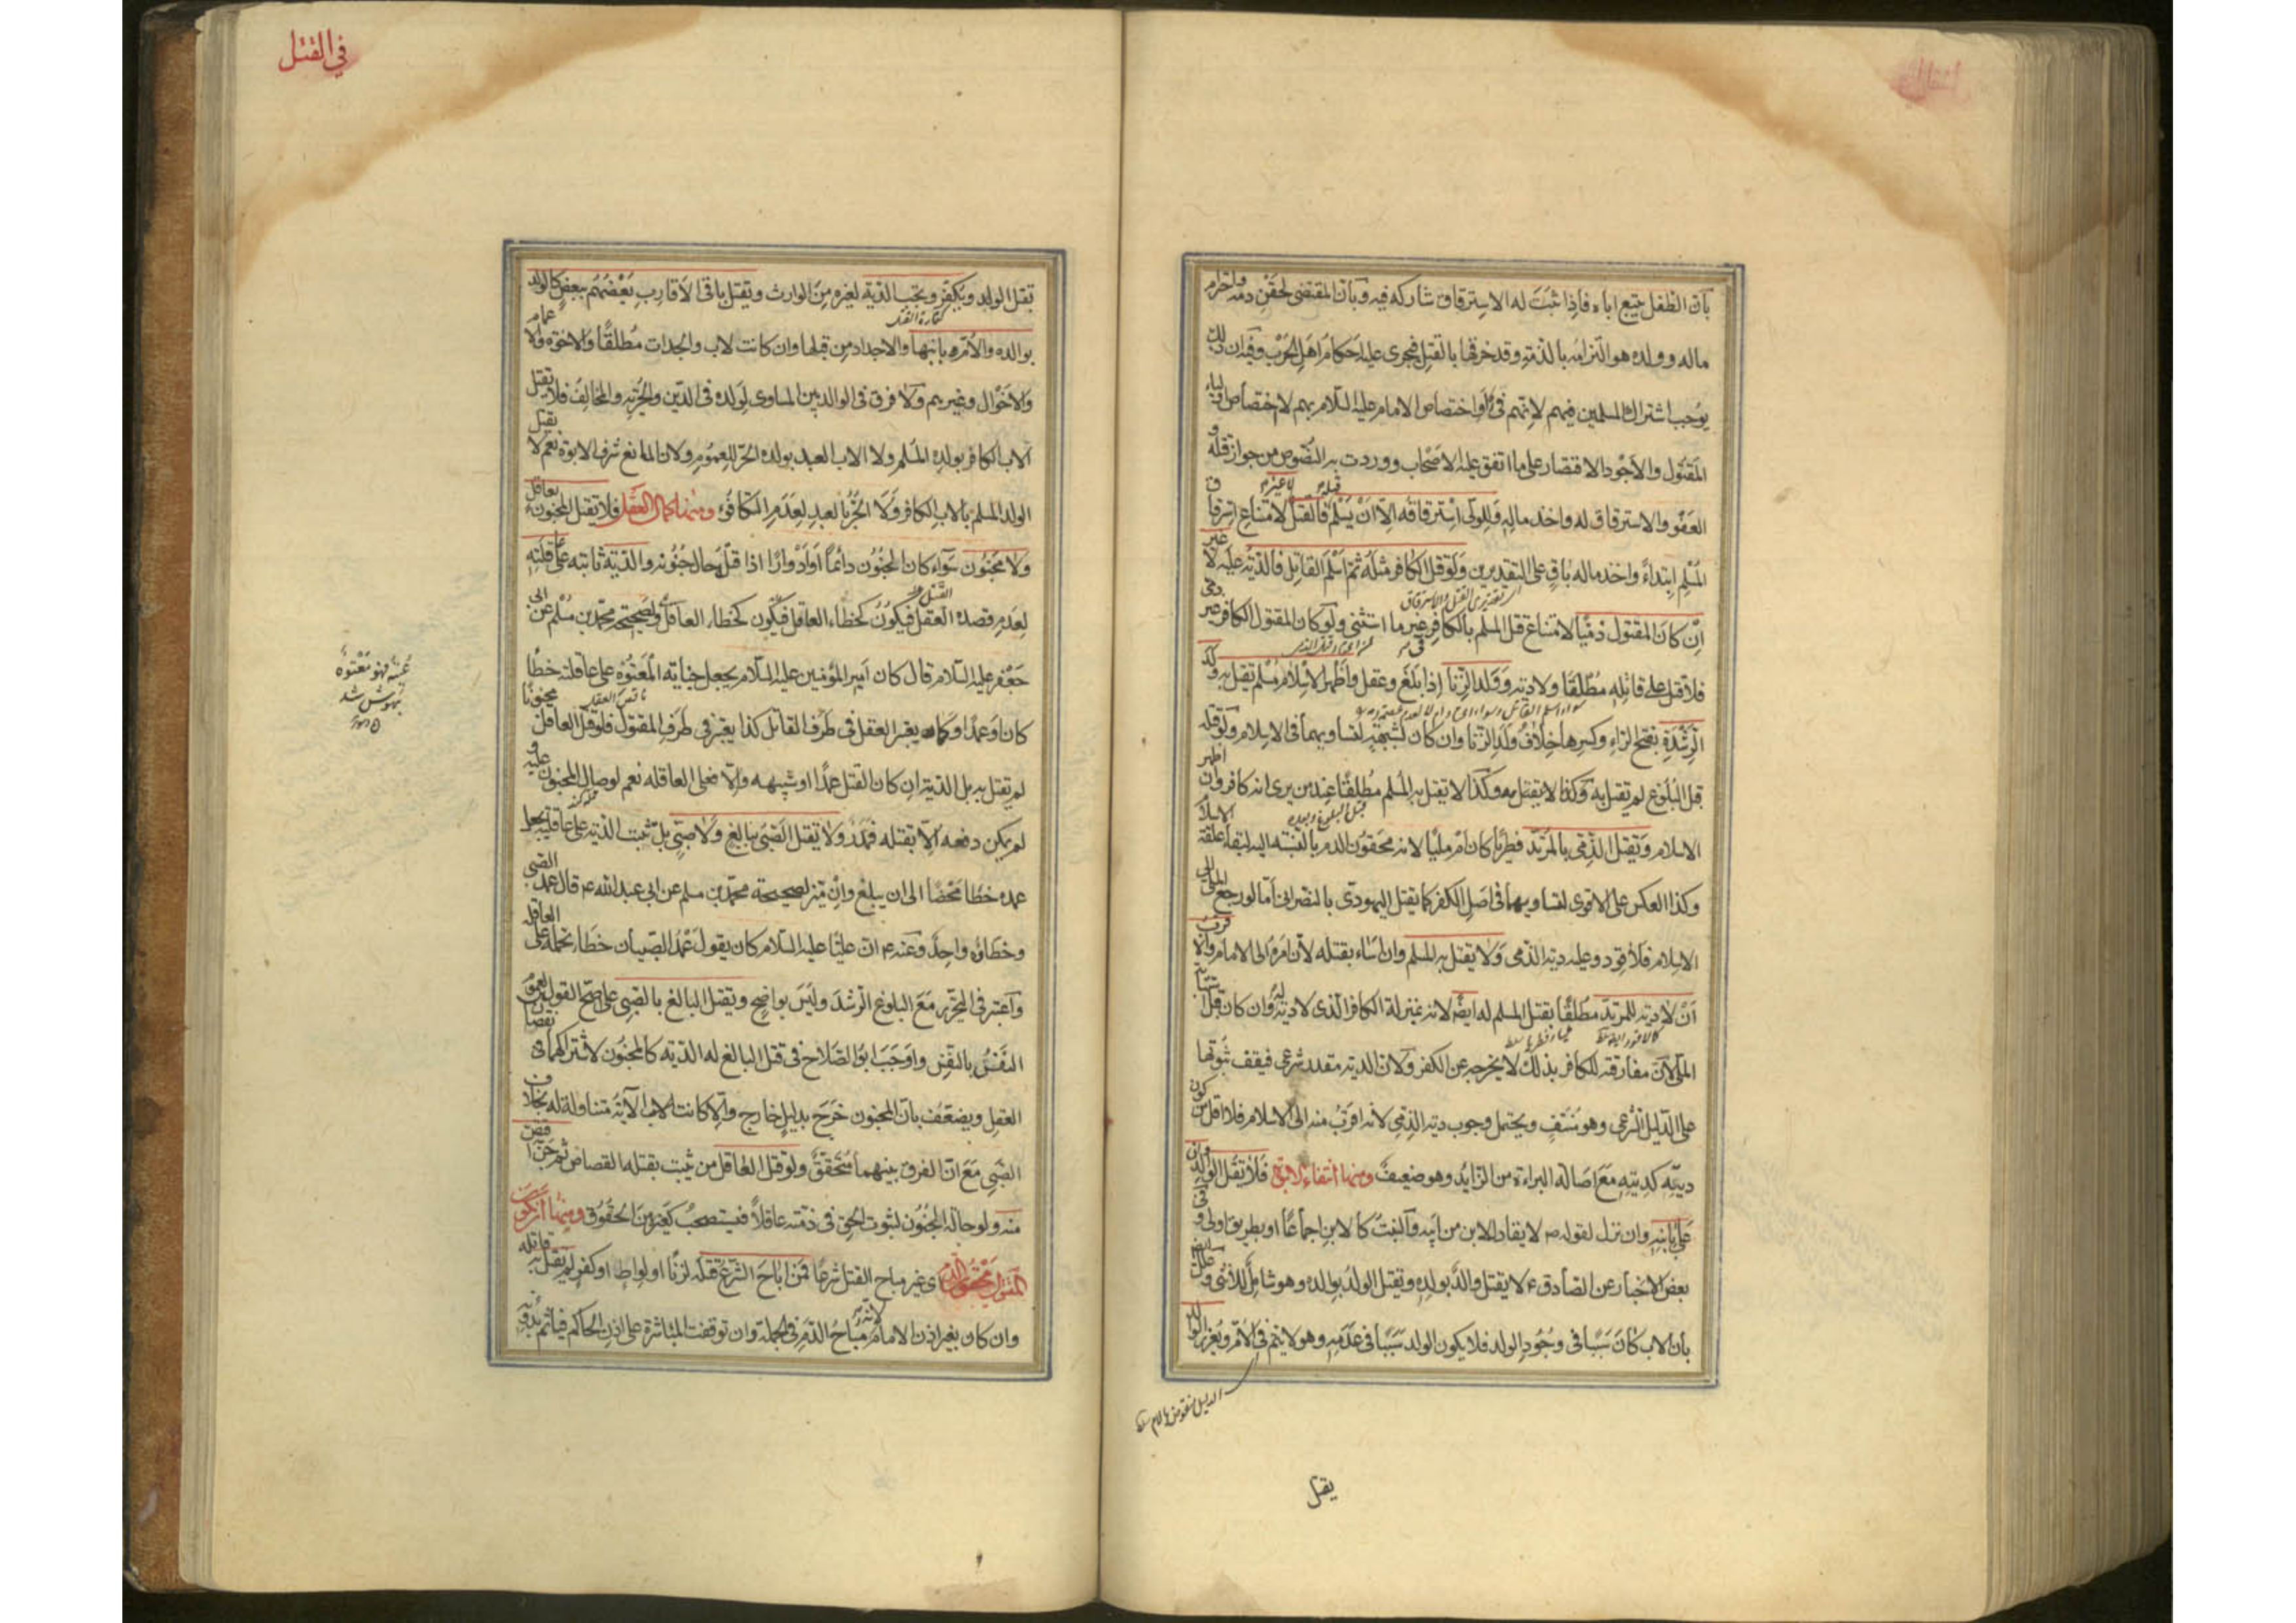 بأن الطفل يتبع اباه فاذا ثبت له الاسترقاق شاركه فيه وبأن المقتضى لحقن دمه واحترام
ماله وولده هو التزامه بالذمة وقد خرقها بالقتل فيجرى عليه احكام اهل الحرب وفيه ان ذلك
يوجب اشتراك المسلمين فيهم لانهم فئ أو اختصاص الامام عليه السلام بهم لا اختصاص اولياء
المقتول والاجود الاقتصار على ما اتفق عليه الاصحاب ووردت به النصوص من جواز قتله و
العفو والاسترقاق له واخذ ماله وللولى استرقاقه الا ان يسلم فالقتل لا غير لامتناع استرقاق
المسلم ابتداء واخذ ماله باق على التقديرين ولو قتل الكافر مثله ثم اسلم القاتل فالدية عليه لا غير
ان كان المقتول ذميا لامتناع قتل المسلم بالكافر فى غير ما استثنى ولو كان المقتول الكافر غير ذمى
فلا قتل على قاتله مطلقا ولا دية وولد الزنا اذا بلغ وعقل واظهر الاسلام مسلم يقتل به ولد
الرشدة بفتح الراء وكسرها خلاف ولد الزنا وان كان لشبهة لتساويهما فى الاسلام ولو قتله
قبل البلوغ لم يقتل به وكذا لا يقتل به المسلم مطلقا عند من يرى انه كافر وان اظهر
الاسلام ويقتل الذمى بالمرتد فطريا كان ام مليا لانه محقون الدم بالنسبة اليه لبقاء علقة الاسلام
وكذا العكس على الاقوى لتساويهما فى اصل الكفر كما يقتل اليهودى بالنصرانى اما لو رجع الملى الى
الاسلام فلا قود وعليه دية الذمى ولا يقتل به المسلم وان اساء بقتله لان امره الى الامام والاقرب
ان لا دية للمرتد مطلقا بقتل المسلم له ايضا لانه بمنزلة الكافر الذى لا دية له وان كان قبل استتابة
الملى لان مفارقته للكافر بذلك لا يخرجه عن الكفر ولان الدية مقدر شرعى فيقف ثبوتها
على الدليل الشرعى وهو منتف ويحتمل وجوب دية الذمى لانه اقرب منه الى الاسلام فلا اقل من كون
ديته كديته مع اصالة البراءة من الزايد وهو ضعيف ومنها انتفاء الابوة فلا يقتل الوالد وان
على بابنه وان نزل لقوله ص لا يقاد للابن من ابيه والبنت كالابن اجماعا او بطريق اولى وفى
بعض الاخبار عن الصادق ع لا يقتل والد بولده ويقتل الولد بوالده وهو شامل للانثى وعلل ايضا
بان الاب كان سببا فى وجود الولد فلا يكون الولد سببا فى عدمه وهو لا يتم فى الام ويعزر الوالد
يقتل
فى القتل
يقتل الولد ويكفر ويجب الدية لغيره من الوارث ويقتل باقى الاقارب بعضهم ببعض كالولد
كفارة القتل
بوالده والام بابنها والاجداد من قبلها وان كانت لاب والجدات مطلقا والاخوة والاعمام
والاخوال وغيرهم ولا فرق فى الوالد بين المساوى لولده فى الدين والحرية والمخالف فلا يقتل
الاب الكافر بولده المسلم ولا الاب العبد بولده الحر للعموم ولان المانع شرف الابوة نعم لا يقتل
الولد المسلم بالاب الكافر ولا الحر بالعبد لعدم التكافؤ ومنها كمال العقل فلا يقتل المجنون بعاقل
ولا مجنون سواء كان المجنون دائما أو أدوارا اذا قتل حال جنونه والدية ثابتة على عاقلته
لعدم قصده القتل فيكون كخطاء العاقل ولصحيحة محمد بن مسلم عن ابى
جعفر عليه السلام قال كان امير المؤمنين عليه السلام يجعل جناية المعتوه على عاقلته خطأ
كان او عمدا وكما يعتبر العقل فى طرف القاتل كذا يعتبر فى طرف المقتول فلو قتل العاقل مجنونا
لم يقتل به بل الدية ان كان القتل عمدا او شبهه والا فعلى العاقلة نعم لو صال المجنون عليه و
لم يمكن دفعه الا بقتله فهدر ولا يقتل الصبى ببالغ ولا صبى بل تثبت الدية على عاقلته بجعل
عمده خطأ محضا الى ان يبلغ وان ميز لصحيحة محمد بن مسلم عن ابى عبد الله ع قال عمد الصبى
وخطاؤه واحد وعنه ع ان عليا عليه السلام كان يقول عمد الصبيان خطاء تحمله العاقلة
واعتبر فى التحرير مع البلوغ الرشد وليس بواضح ويقتل البالغ بالصبى على اصح القولين لعموم
النفس بالنفس واوجب ابو الصلاح فى قتل البالغ له الدية كالمجنون لاشتراكهما فى نقصان
العقل ويضعف بان المجنون خرج بدليل خارج والا كانت الاية متناولة له بخلاف
الصبى مع ان الفرق بينهما متحقق ولو قتل العاقل من يثبت بقتله القصاص ثم جن اقتص
منه ولو حالة الجنون لثبوت الحق فى ذمته عاقلا فيستصحب كغيره من الحقوق ومنها ان يكون
المقتول محقون الدم اى غير مباح القتل شرعا فمن اباح الشرع قتله لزنا او لواط او كفر لم يقتل به قاتله
وان كان بغير اذن الامام لانه مباح الدم فى الجملة وان توقفت المباشرة على اذن الحاكم فيأثم بدونه